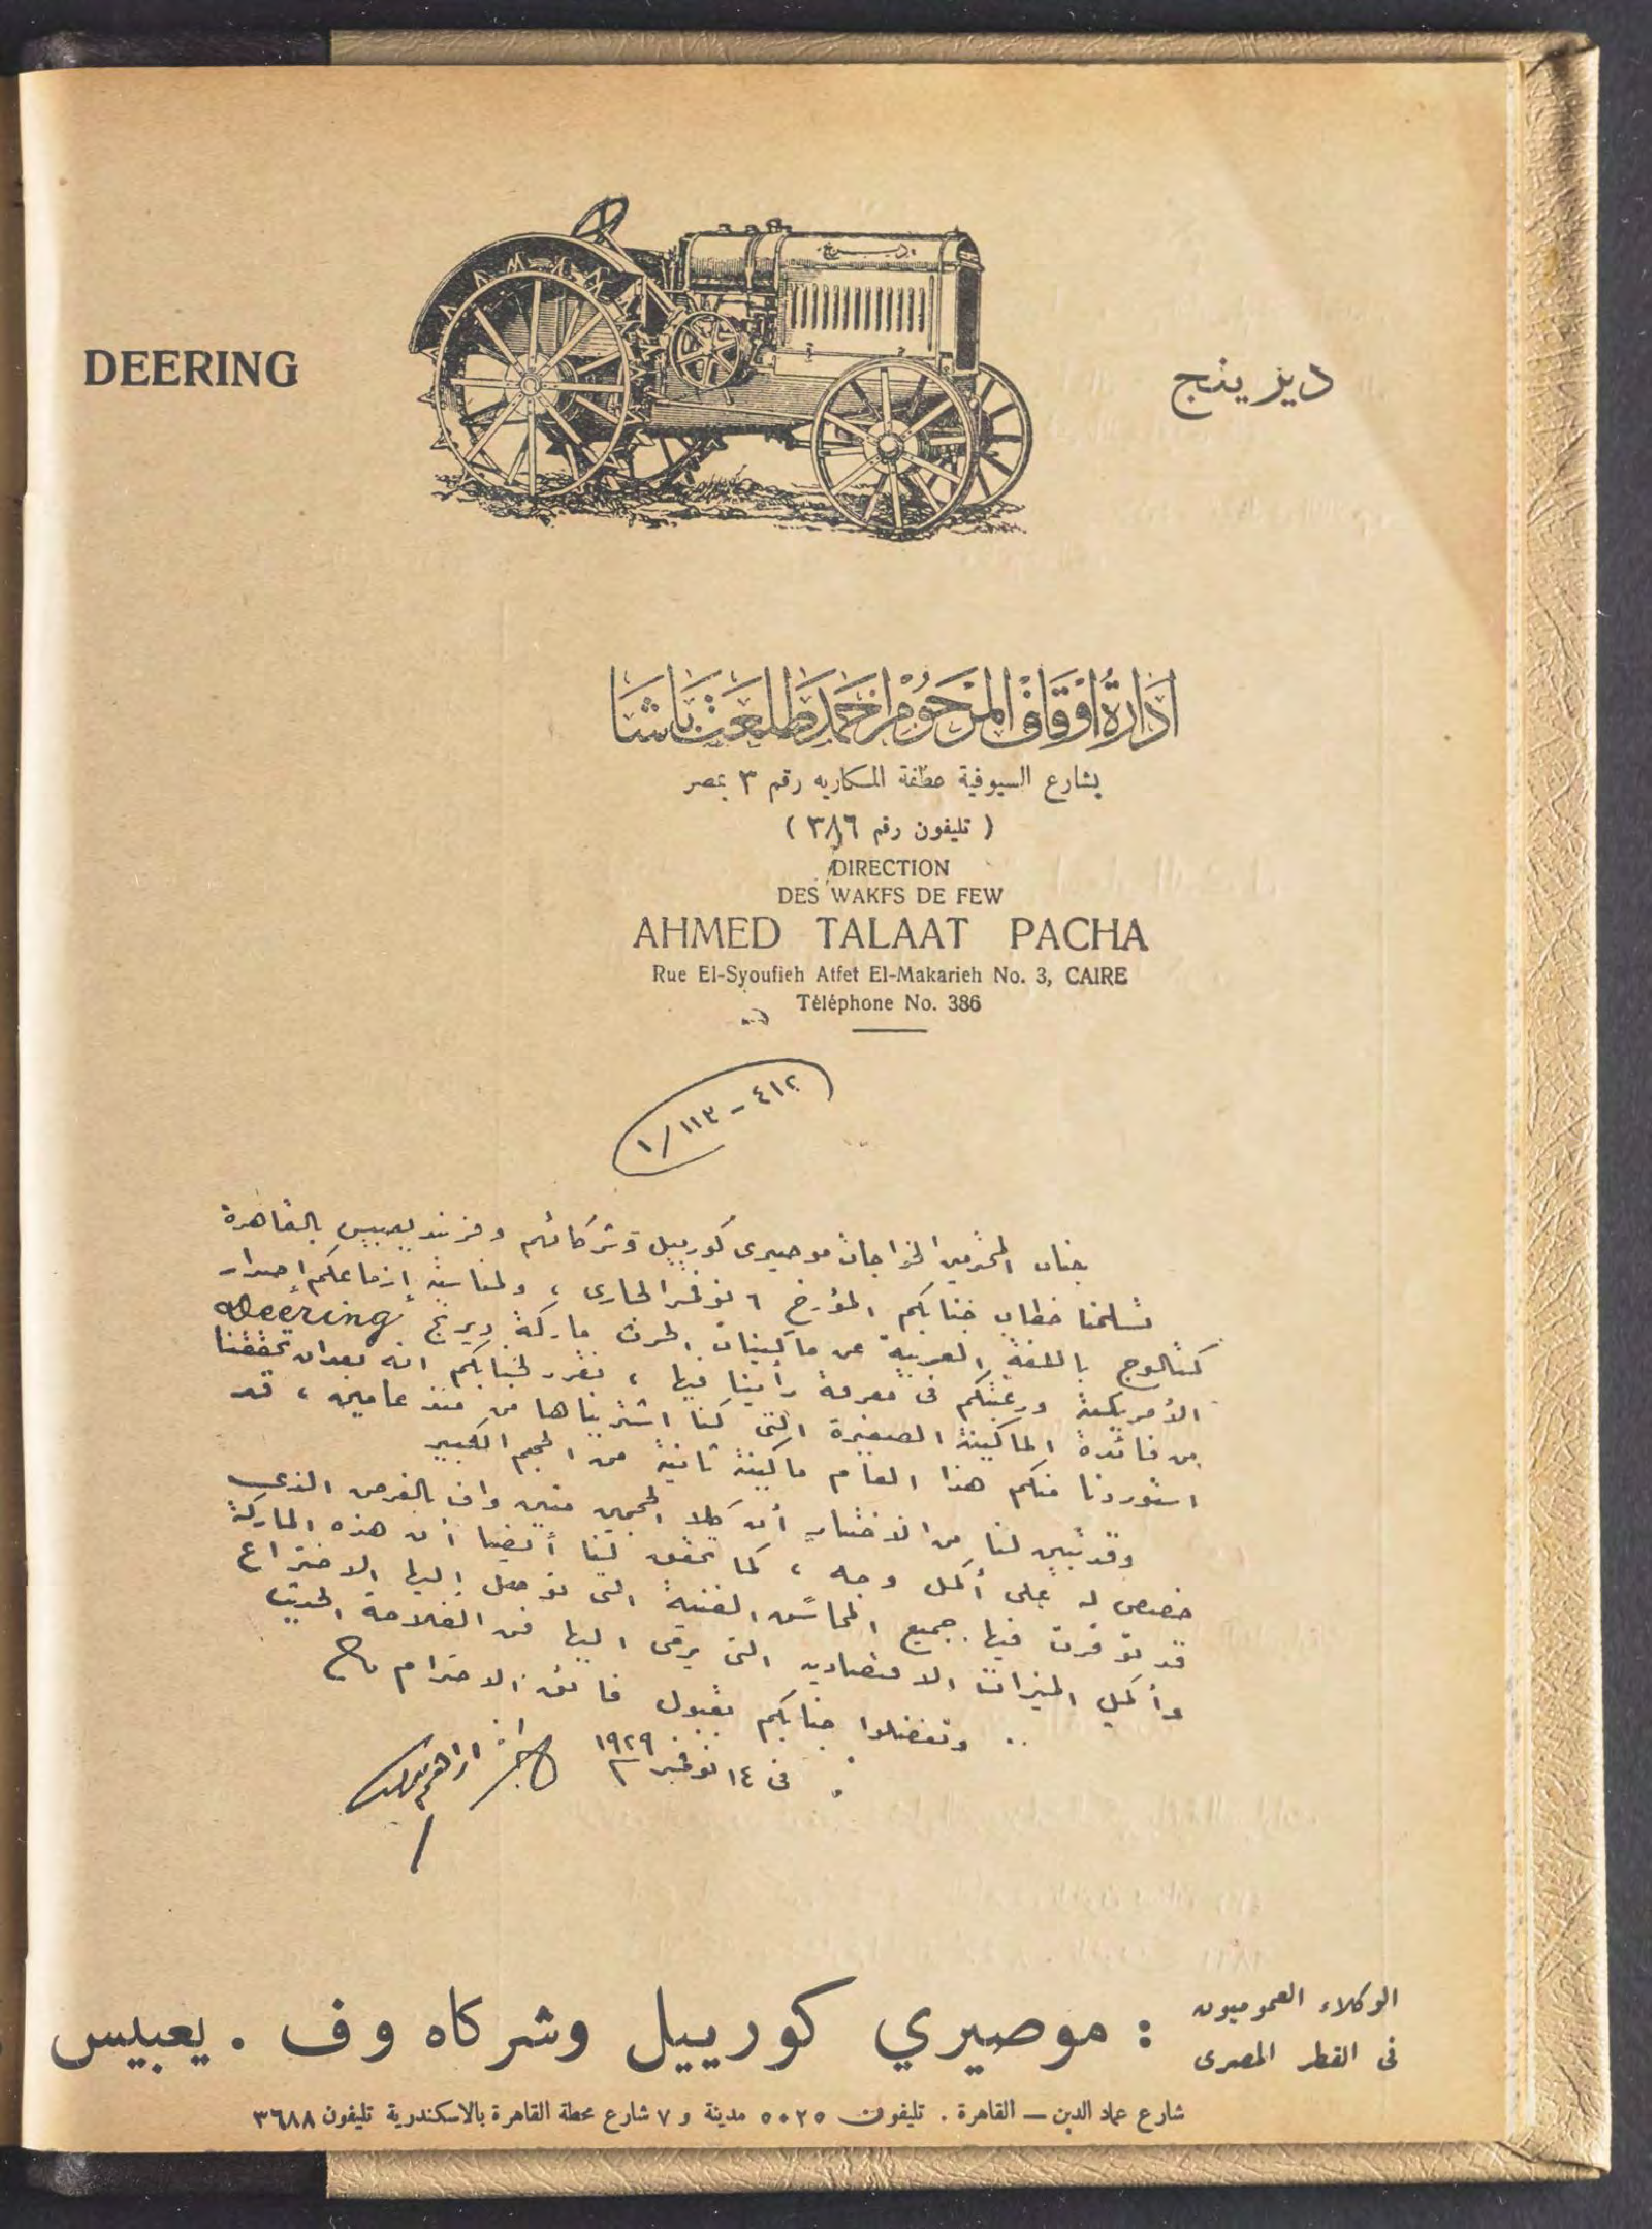 DEERING
ديرينج
ادارة اوقاف المرحوم احمد طلعت باشا
بشارع السيوفية عطفة المكاريه رقم ٣ بمصر
( تليفون رقم ٣٨٦ )
DIRECTION
DES WAKFS DE FEW
AHMED TALAAT PACHA
Rue El-Syoufieh Atfet El-Makarieh No. 3, CAIRE
Téléphone No. 386
٤١٢ - ١١٣ / ١
جناب المحترمين الخواجات موصيرى كورييل وشركائهم وفرند يعبيس بالقاهرة
تسلمنا خطاب جنابكم المؤرخ ٦ نوفمبر الجارى ، ولمناسبة إزماعكم إصدار
كتالوج باللغة العربية عن ماكينات الحرث ماركة ديرنج Deering
الأمريكية ورغبتكم فى معرفة رأينا فيها ، نقرر لجنابكم انه بعد ان تحققنا
من فائدة الماكينة الصغيرة التى كنا اشتريناها من منذ عامين ، قد
استوردنا منكم هذا العام ماكينة ثانية من الحجم الكبير
وقد تبين لنا من الاختبار أن كلا الحجمين متين واف بالغرض الذى
خصص له على أكمل وجه ، كما تحقق لنا أيضا أن هذه الماركة
قد توفرت فيها جميع المحاسن الفنية التى توصل إليها الاختراع
وأكمل الميزات الاقتصاديه التى يرقى اليها فن الفلاحة الحديث
وتفضلوا جنابكم بقبول فائق الاحترام
فى ١٤ نوفمبر ١٩٢٩
الوكلاء العموميون
فى القطر المصرى
: موصيري كورييل وشركاه وف . يعبيس
شارع عماد الدين — القاهرة . تليفون ٥٠٢٥ مدينة و ٧ شارع محطة القاهرة بالاسكندرية تليفون ٣٦٨٨